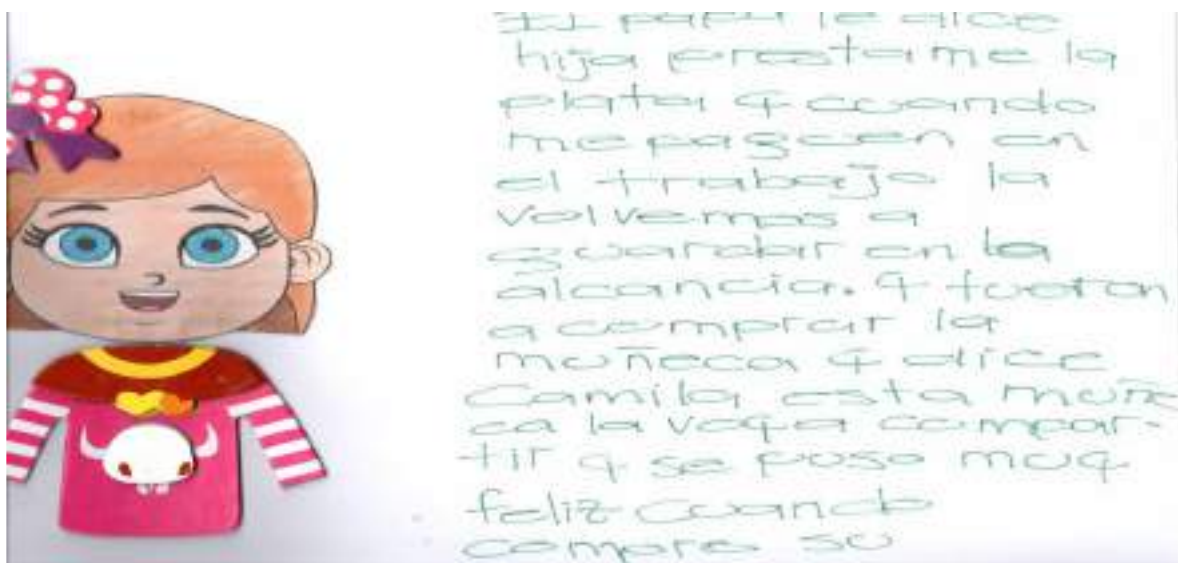 El papa le dice
hija prestame la
plata y cuando
me pageen en
el trabajo la
volvemos a
guardar en la
alcancia. y fueron
a comprar la
muñeca y dice
Camila esta muñe
ca la voy a compar-
tir y se puso muy
feliz cuando
compro su